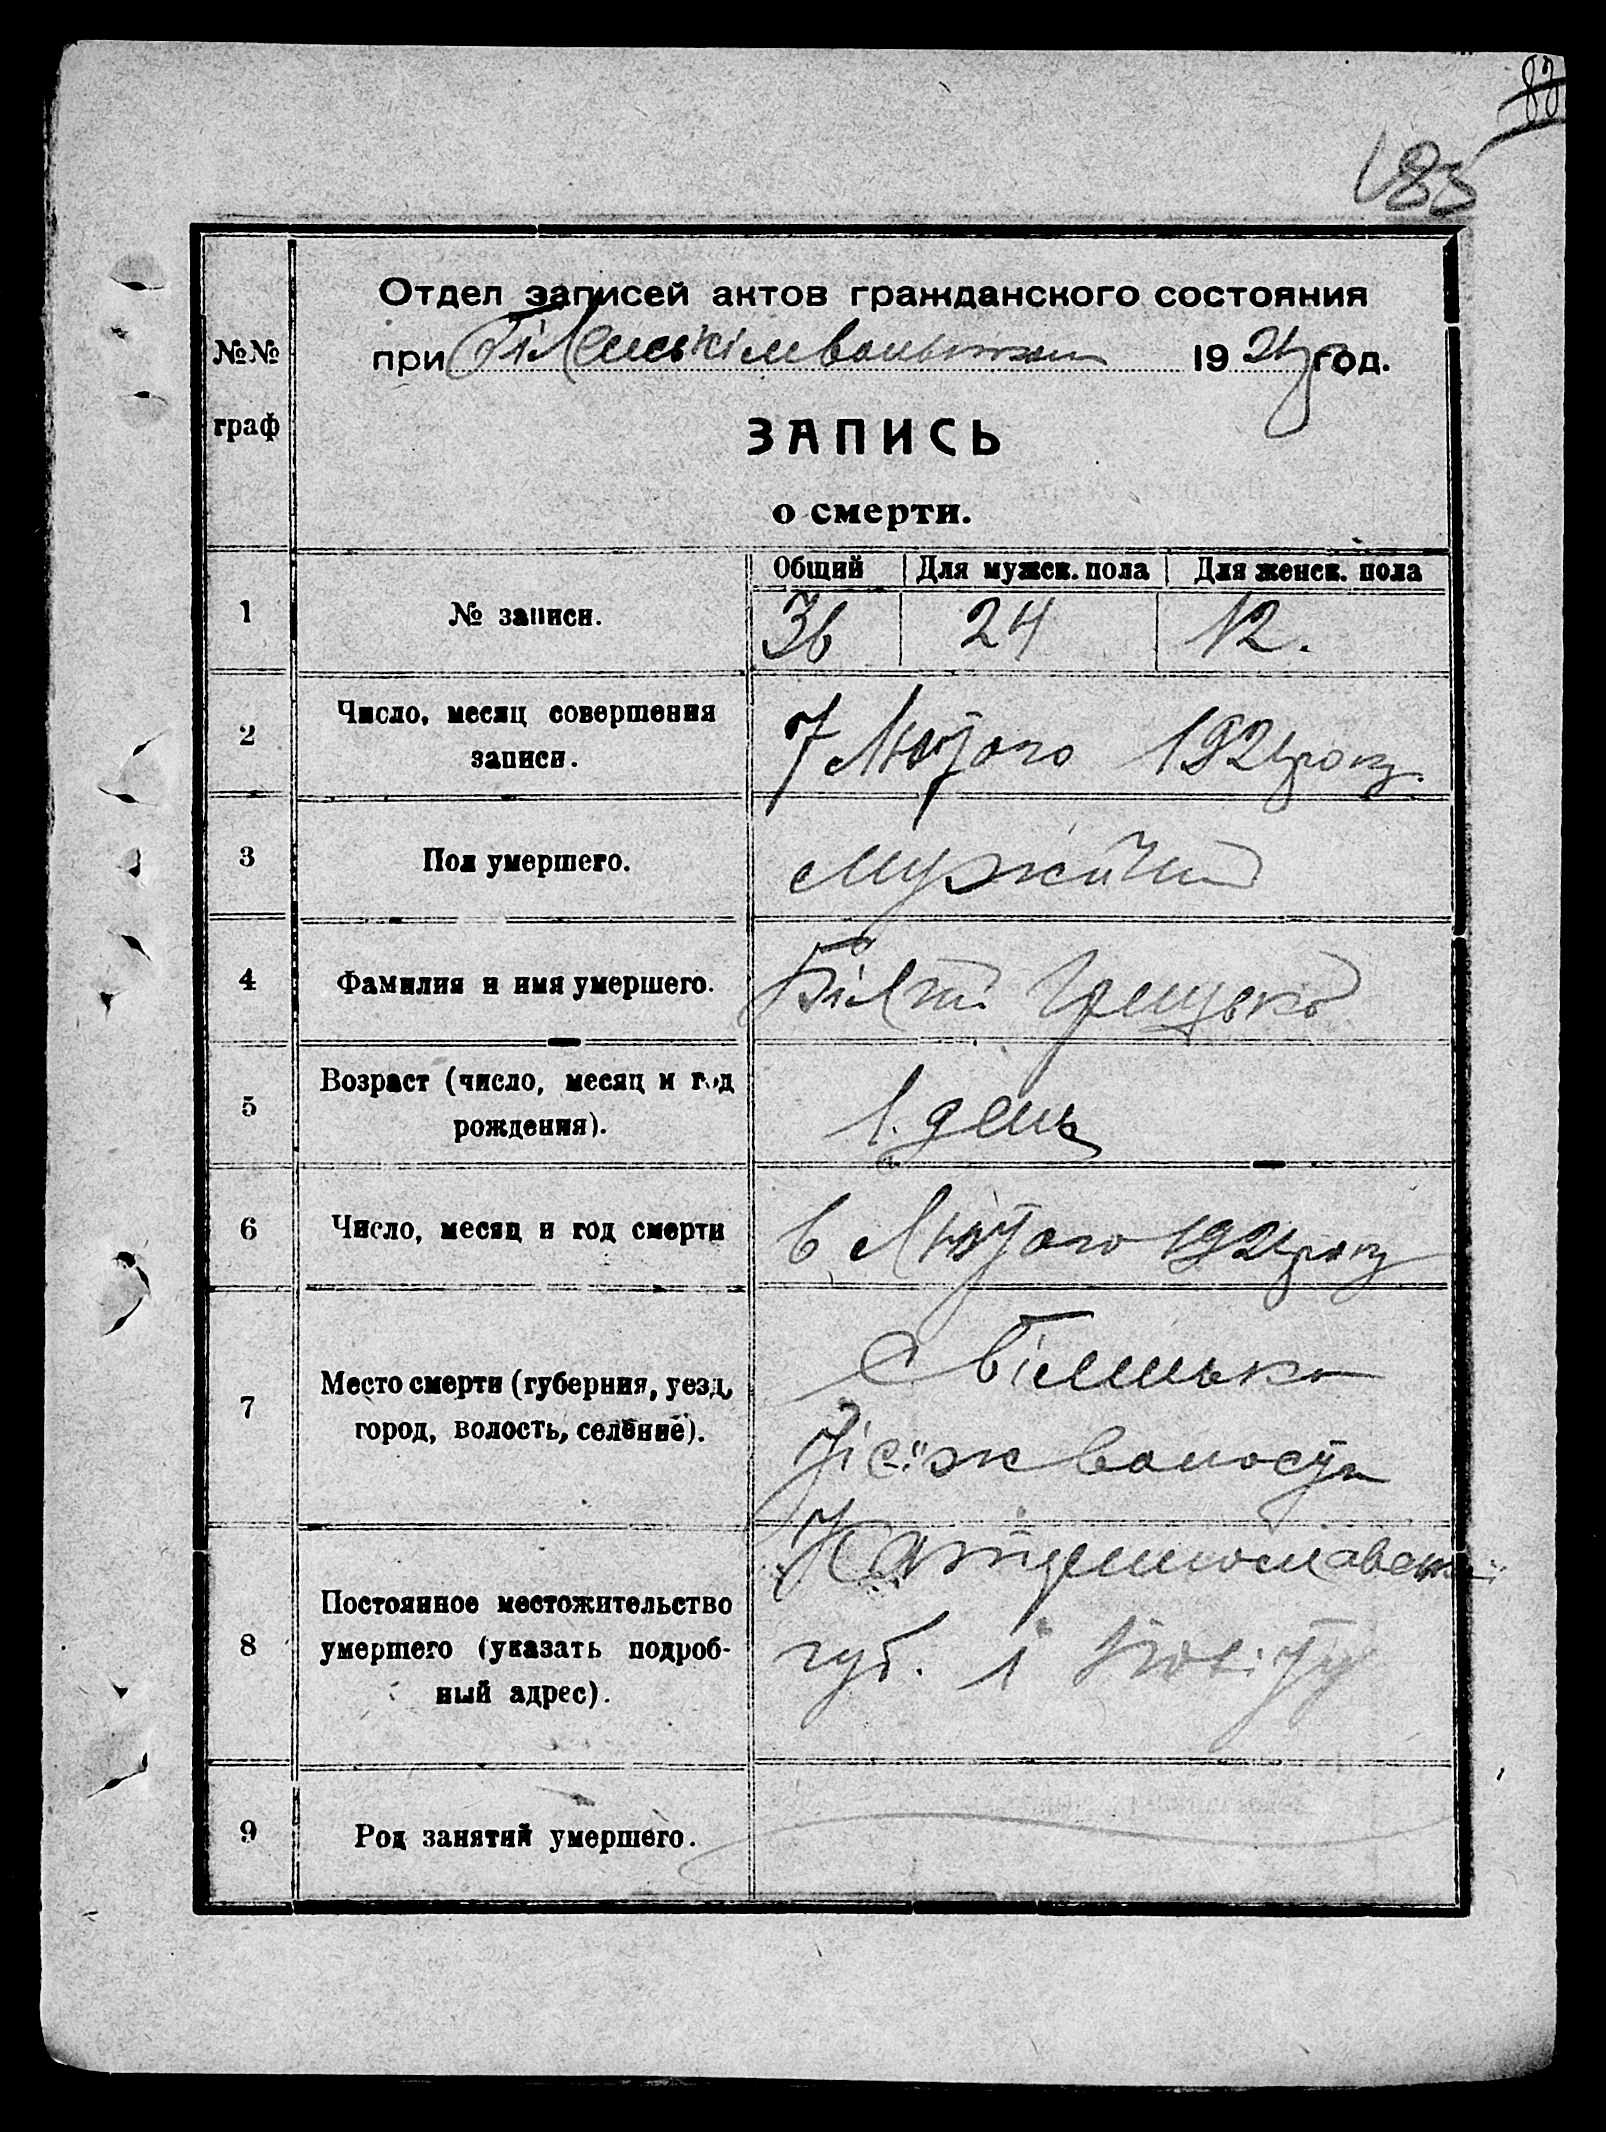 83
183
Отдел записей актов гражданского состояния
№№ при 192 год.
граф
ЗАПИСЬ
о смерти.
Общий Для мужск. пола Для женск. пола
1 № записи. 36 24 12.
2 Число, месяц совершения
записи. 7 Лютого 192 року.
3 Пол умершего.
4 Фамилия и имя умершего. Білий Грицько
5 Возраст (число, месяц и год
рождения). 1. день
6 Число, месяц и год смерти 6 Лютого 192 року
7 Место смерти (губерния, уезд,
город, волость, селение).
с
тієїж волости
8 Постоянное местожительство
умершего (указать подроб-
ный адрес).
губ. і повіту
9 Род занятий умершего.